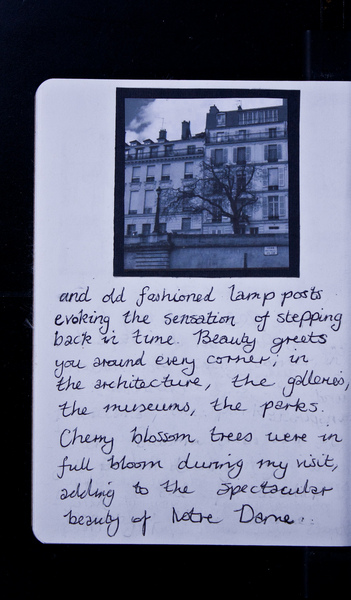 and old fashioned lamp posts
evoking the sensation of stepping
back in time. Beauty greets
you around every corner; in
the architecture, the galleries,
the museums, the parks.
Cherry blossom trees were in
full bloom during my visit,
adding to the spectacular
beauty of Notre Dame.